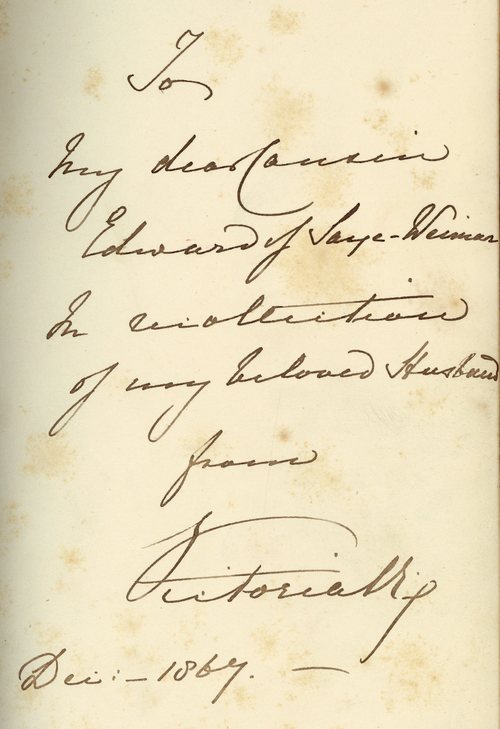 To
My dear Cousin
Edward of Saxe-Weimar
In recollection
of my beloved Husband
from
Victoria R
Dec: – 1867. —